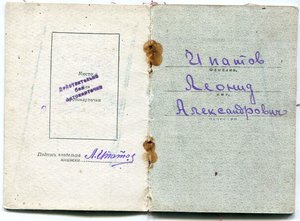 Место
Действительна
без
фотокарточки
фотокарточки
Подпись владельца
книжки
Л.Ипатов
Ипатов
Фамилия
Леонид
имя
Александрович
отчество